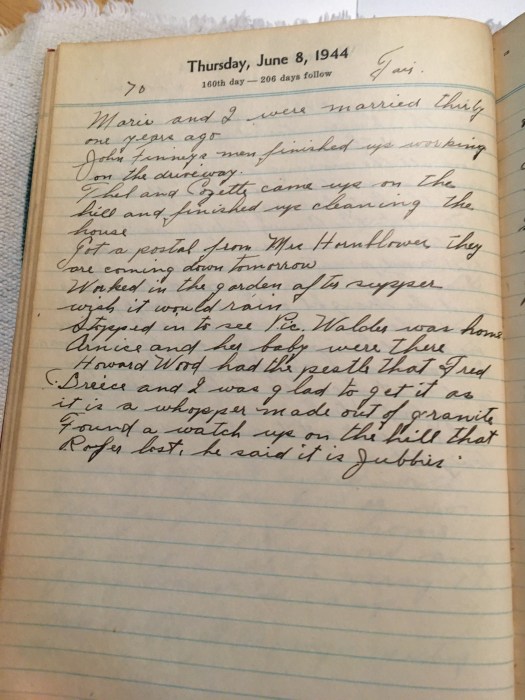 Thursday, June 8, 1944
160th day — 206 days follow
70 Fair.
Marie and I were married thirty
one years ago
John Finneys men finished up working
on the driveway.
Thel and Cozette came up on the
hill and finished up cleaning the
house
Got a postal from Mrs Hornblower they
are coming down tomorrow
Worked in the garden after supper
wish it would rain
Stopped in to see Pic. Walder was home
Arnice and her baby were there
Howard Wood had the pestle that Fred
and I was glad to get it as
it is a whopper made out of granite
Found a watch up on the hill that
Roger lost, he said it is Jubbies